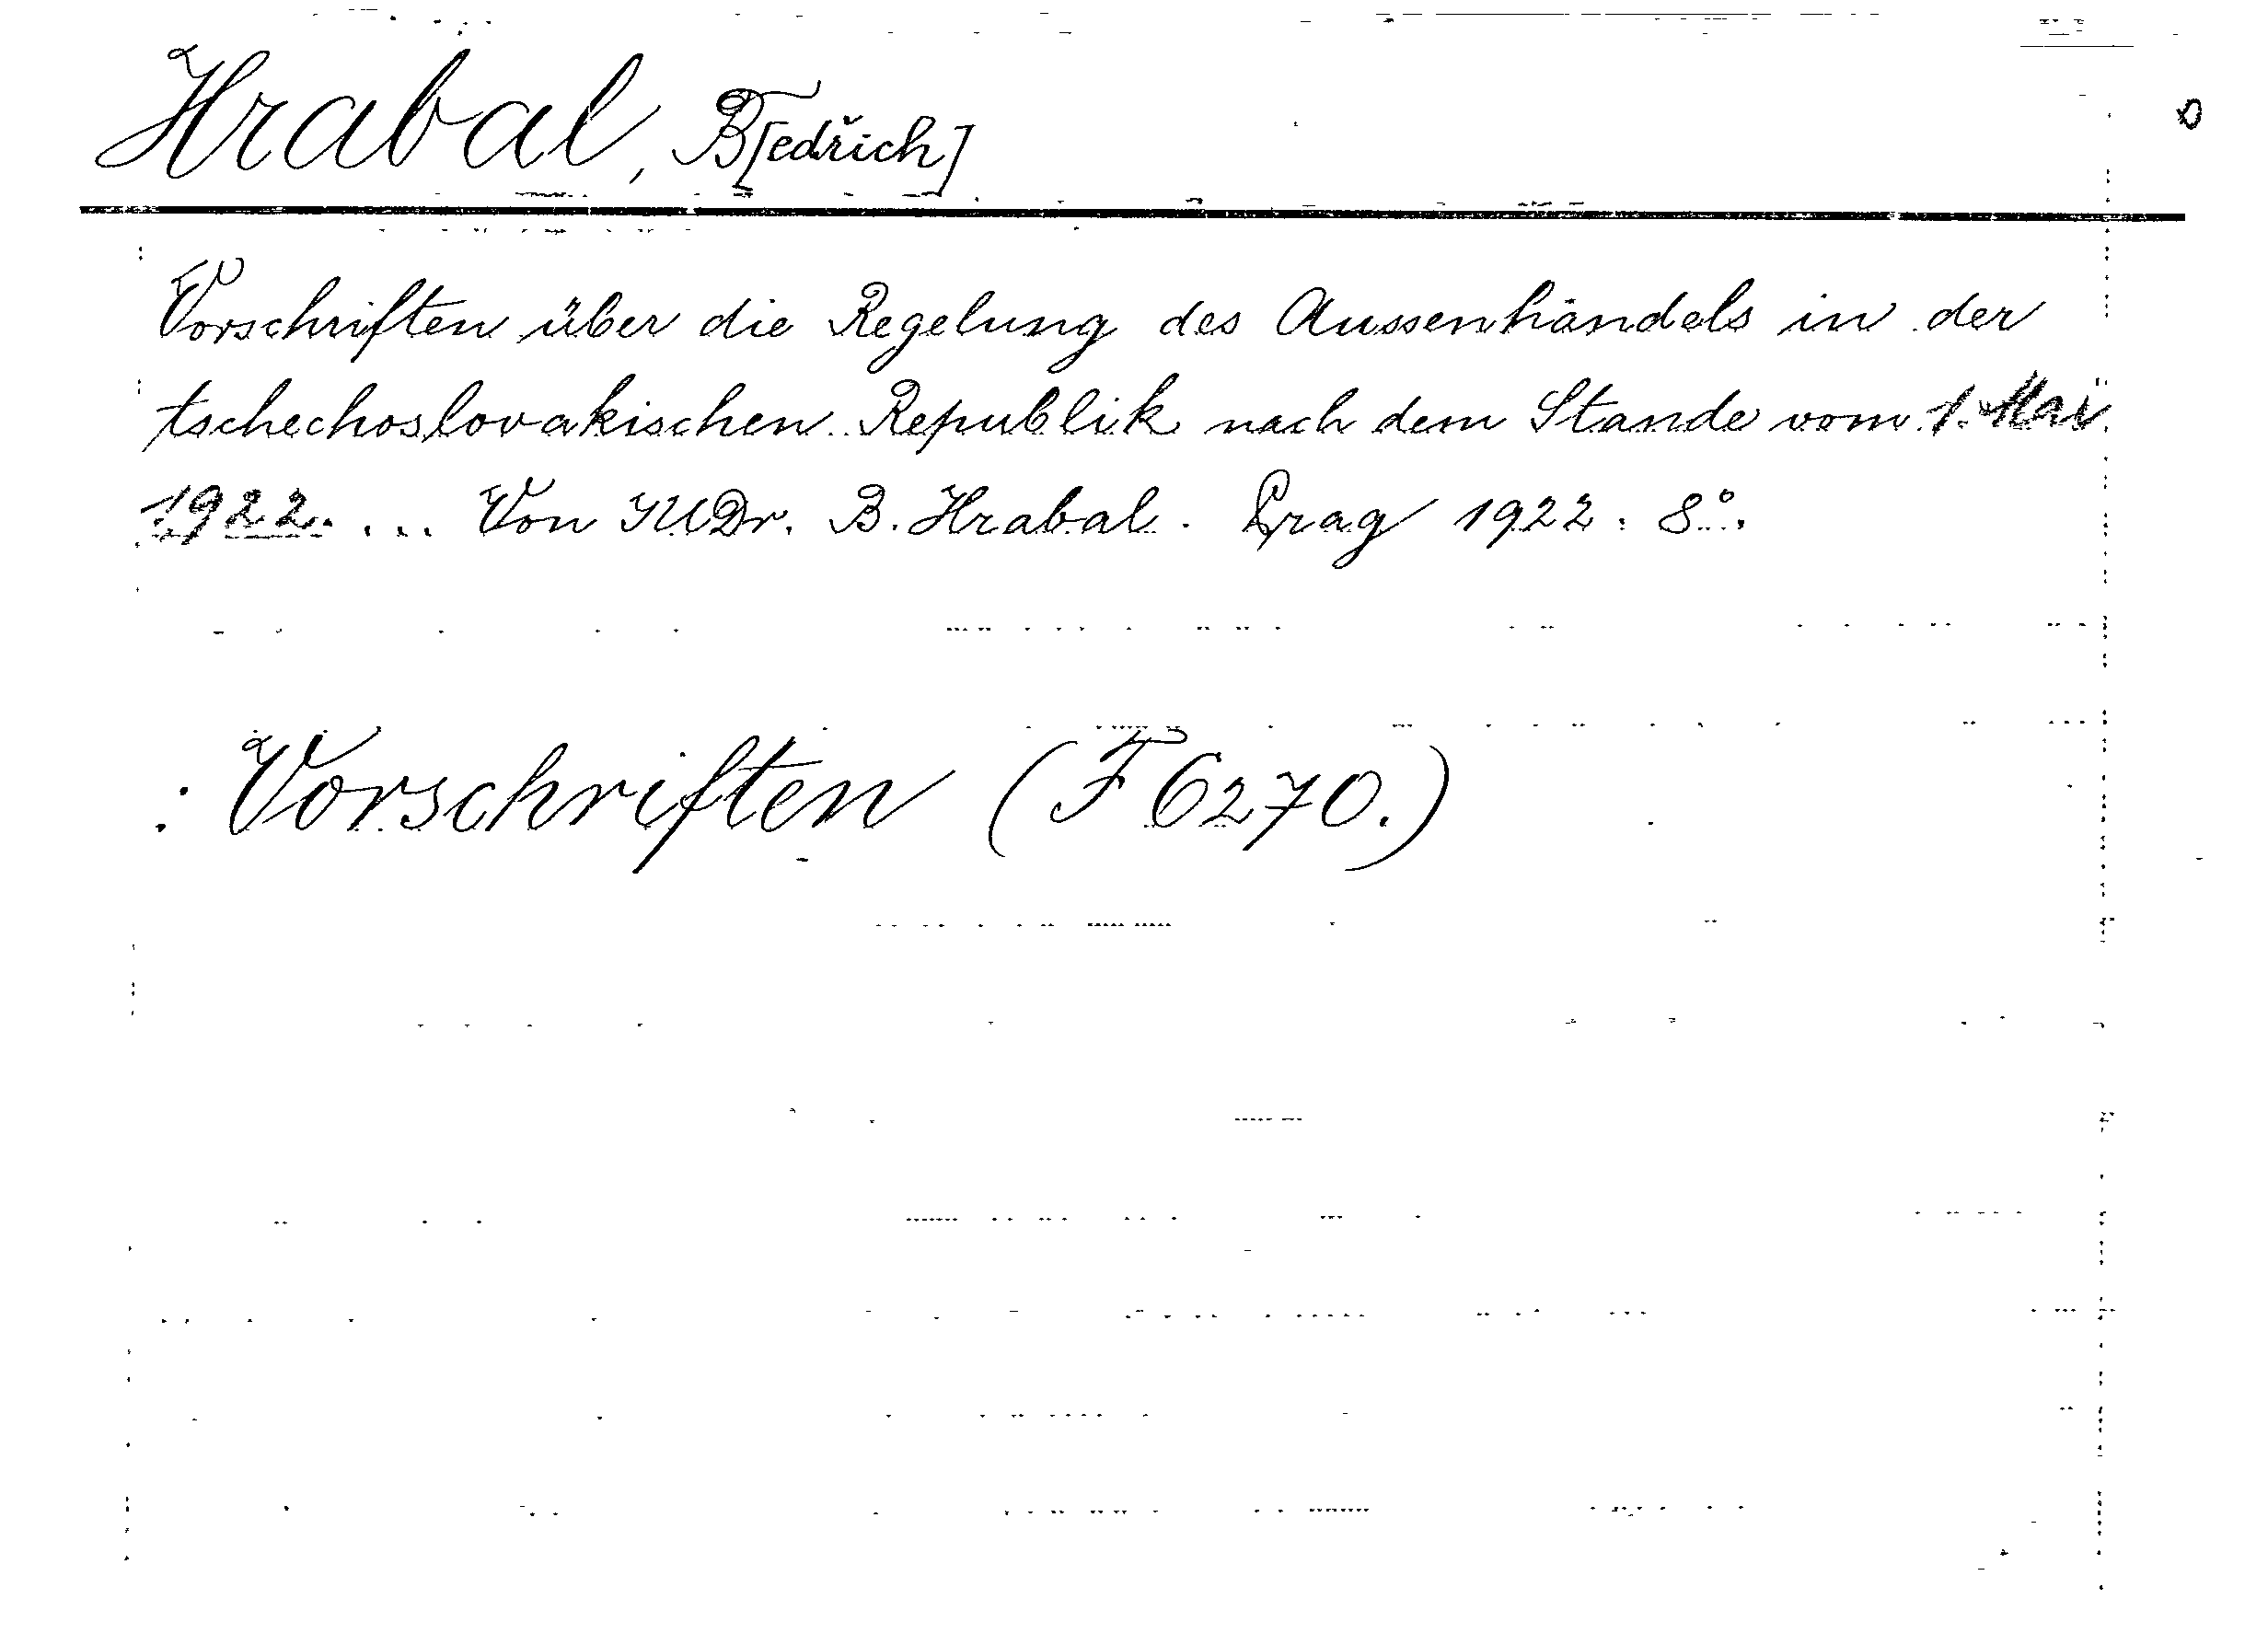 Hrabal, B[edřich]
Vorschriften über die Regelung des Aussenhandels in der
tschechoslovakischen Republik nach dem Stande vom 1. Mai
1922. ... Von JUDr. B. Hrabal. Prag 1922. 8°.
: Vorschriften (F 6270.)